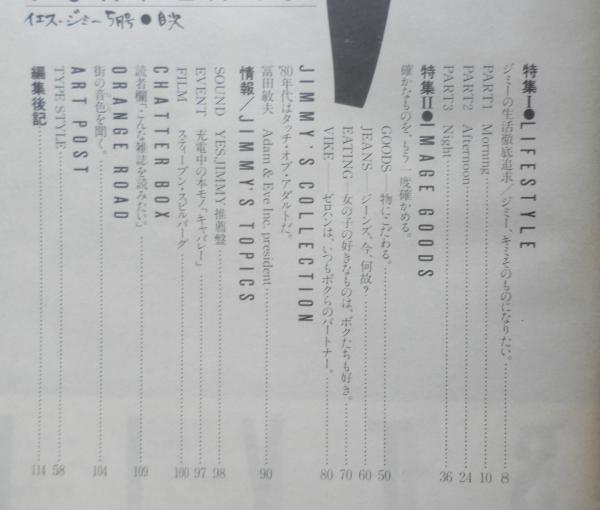 イエス・ジミー5月号●目次
特集Ⅰ●LIFESTYLE
ジミーの生活徹底追求／ジミー、キミそのものになりたい。……8
PART1 Morning……10
PART2 Afternoon……24
PART3 Night……36
特集Ⅱ●IMAGE GOODS
確かなものを、もう一度確かめる。
GOODS 物にこだわる。……50
JEANS──ジーンズ、今、何故?……60
EATING──女の子の好きなものは、ボクたちも好き。……70
VIKE──ゼロハンは、いつもボクらのパートナー。……80
JIMMY'S COLLECTION
'80年代はタッチ・オブ・アダルトだ。
冨田敏夫 Adam & Eve Inc. president……90
情報／JIMMY'S TOPICS
SOUND YES,JIMMY推薦盤……98
EVENT 充電中の本モノ「キャバレー」……97
FILM スティーブン・スピルバーグ……100
CHATTER BOX
読者欄「こんな雑誌を読みたい」……109
ORANGE ROAD
街の音色を聞く。……104
ART POST
TYPE STYLE……58
編集後記……114